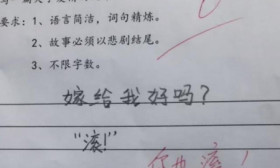 要求：1、语言简洁，词句精炼。
2、故事必须以悲剧结尾。
3、不限字数。
嫁给我好吗？
“滚！”
你也滚！